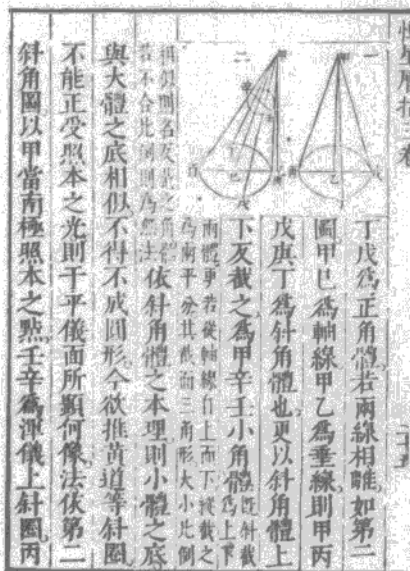 恒星曆指三卷
丁戊爲正角體若兩線相離如第二
圖甲巳爲軸線甲乙爲垂線則甲丙
戊庚丁爲斜角體也更以斜角體上
下反截之爲甲辛壬小角體旣斜截爲上下
兩體更若從軸線自上而下縱截之
爲兩平分其截面三角形大小比例
相似則名反比之角體
若不合比例則爲無法依斜角體之本理則小體之底
與大體之底相似不得不成圓形今欲推黃道等斜圈
不能正受照本之光則于平儀面所顯何像法依第二
斜角圖以甲當南極照本之㸃壬辛爲渾儀上斜圈丙
一
二